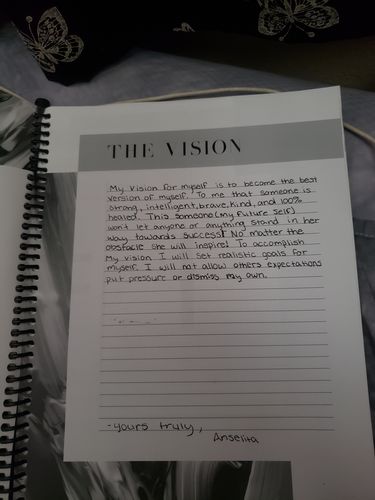 THE VISION
My vision for myself is to become the best
version of myself. To me that someone is
strong, intelligent, brave, kind, and 100%
healed. This someone (my future self)
won't let anyone or anything stand in her
way towards success! No matter the
obstacle she will inspire! To accomplish
My vision I will set realistic goals for
myself. I will not allow others expectations
put pressure or dismiss my own.
-yours truly,
Anselita